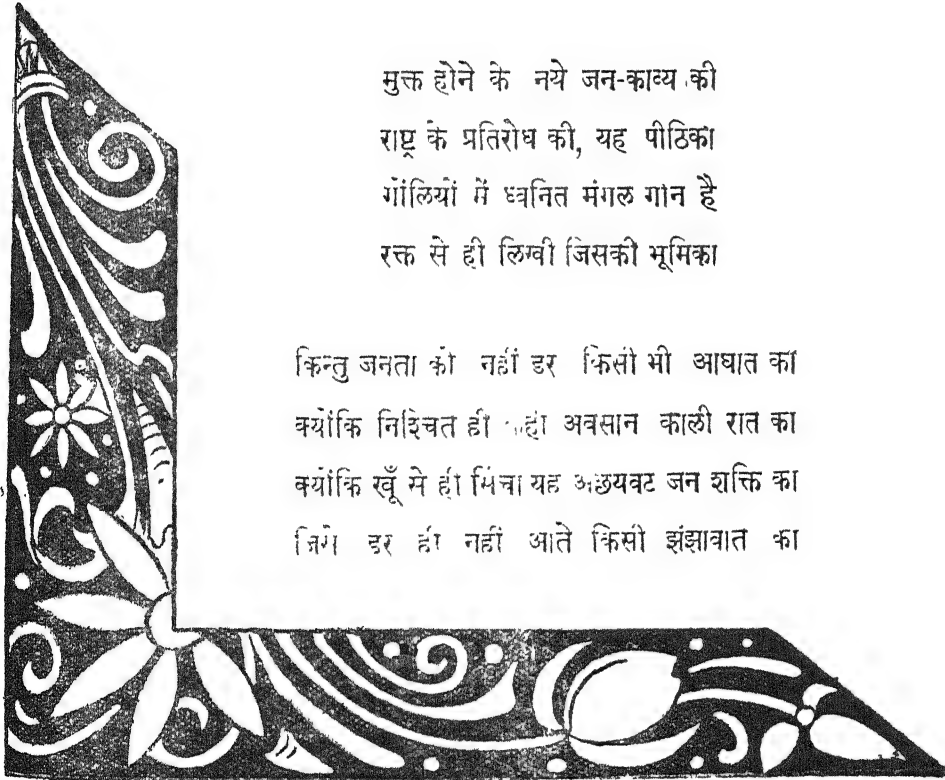 मुक्त होने के नये जन-काव्य की
राष्ट्र के प्रतिरोध की, यह पीठिका
गोलियों में ध्वनित मंगल गान है
रक्त से ही लिखी जिसकी भूमिका
किन्तु जनता को नहीं डर किसी भी आघात का
क्योंकि निश्चित ही अवसान काली रात का
क्योंकि खूँ से ही सिंचा यह अछयवट जन शक्ति का
जिसे डर ही नहीं आते किसी झंझावात का